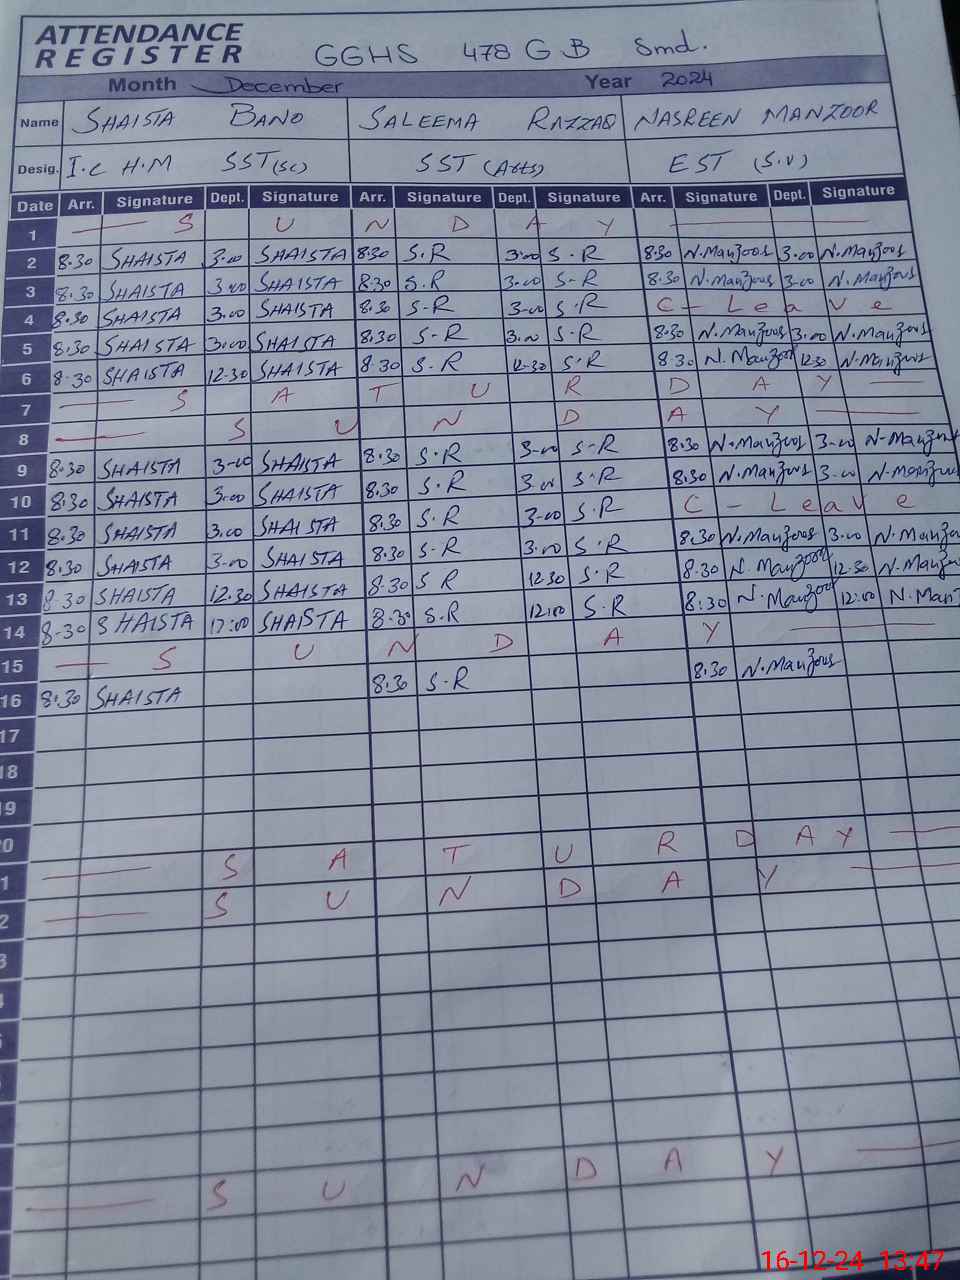 ATTENDANCE
REGISTER GGHS 478 GB Smd.
Month December Year 2024
Name SHAISTA BANO SALEEMA RAZZAQ NASREEN MANZOOR
Desig. I.C H.M SST(SC) SST (Arts) EST (S.V)
Date Arr. Signature Dept. Signature Arr. Signature Dept. Signature Arr. Signature Dept. Signature
1 S U N D A Y
2 8.30 SHAISTA 3.00 SHAISTA 8.30 S.R 3.00 S.R 8.30 N.Manzoor 3.00 N.Manzoor
3 8.30 SHAISTA 3.00 SHAISTA 8.30 S.R 3.00 S-R 8.30 N.Manzoor 3.00 N.Manzoor
4 8.30 SHAISTA 3.00 SHAISTA 8.30 S-R 3-00 S.R C-Leave
5 8.30 SHAISTA 3.00 SHAISTA 8.30 S-R 3.00 S.R 8.30 N.Manzoor 3.00 N.Manzoor
6 8.30 SHAISTA 12.30 SHAISTA 8.30 S.R 12.30 S.R 8.30 N.Manzoor 12.30 N.Manzoor
7 S A T U R D A Y
8 S U N D A Y
9 8.30 SHAISTA 3-00 SHAISTA 8.30 S.R 3-00 S-R 8.30 N.Manzoor 3-00 N-Manzoor
10 8.30 SHAISTA 3.00 SHAISTA 8.30 S.R 3.00 S.R 8.30 N.Manzoor 3.00 N.Manzoor
11 8.30 SHAISTA 3.00 SHAISTA 8.30 S.R 3-00 S.R C - Leave
12 8.30 SHAISTA 3-00 SHAISTA 8.30 S-R 3.00 S.R 8.30 N.Manzoor 3.00 N.Manzoo
13 8.30 SHAISTA 12.30 SHAISTA 8.30 S R 12.30 S.R 8.30 N.Manzoor 12.30 N.Manzo
14 8-30 SHAISTA 12:00 SHAISTA 8.30 S.R 12:00 S.R 8:30 N.Manzoor 12:00 N.Man
15 S U N D A Y
16 8.30 SHAISTA 8.30 S-R 8.30 N.Manzoor
17
18
19
0
1 S A T U R D A Y
2 S U N D A Y
3
4
S U N D A Y
16-12-24 13:47